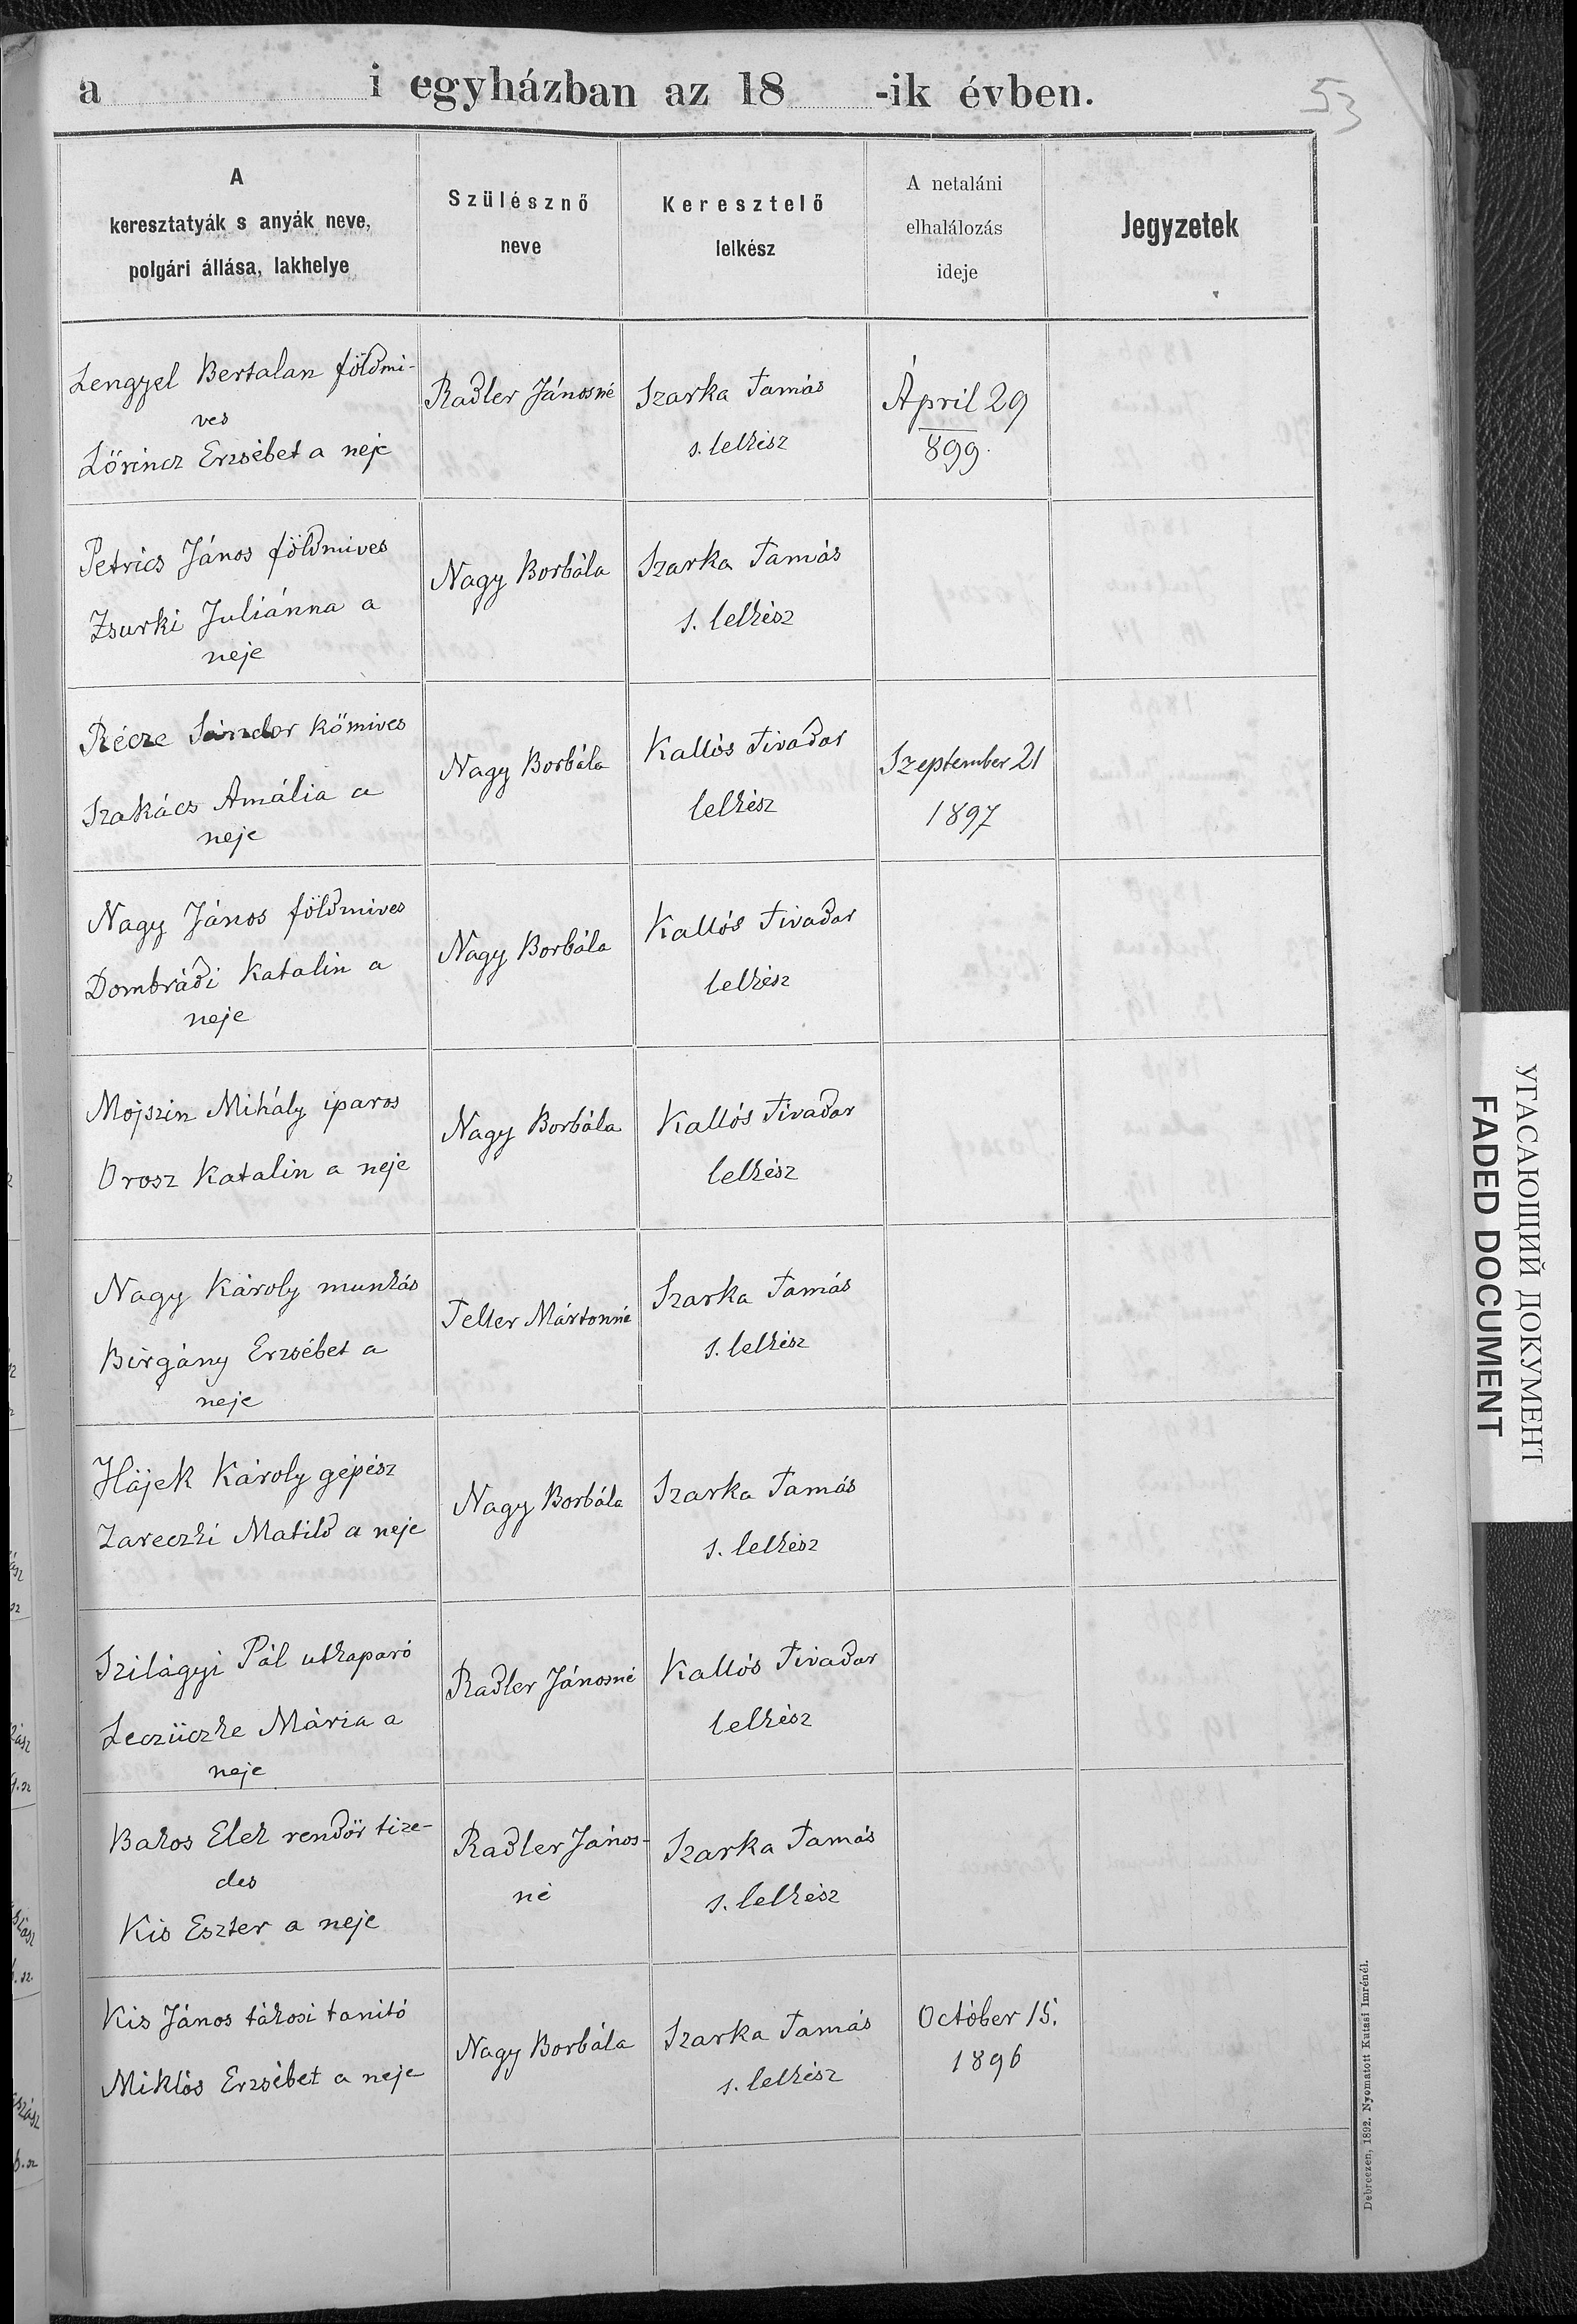 a i egyházban az 18 -ik évben.
53
A
keresztatyák s anyák neve,
polgári állása, lakhelye
Szülésznő
neve
Keresztelő
lelkész
A netaláni
elhalálozás
ideje
Jegyzetek
Lengyel Bertalan földmi-
ves
Lőrincz Erzsébet a neje
Radler Jánosné
Szarka Tamás
s. lelkész
Ápril 29
899.
Petrics János földmives
Zsurki Juliánna a
neje
Nagy Borbála
Szarka Tamás
s. lelkész
Récze Sándor kőmives
Szakács Amália a
neje
Nagy Borbála
Kallós Tivadar
lelkész
Szeptember 21
1897
Nagy János földmives
Dombrádi Katalin a
neje
Nagy Borbála
Kallós Tivadar
lelkész
Mojszin Mihály iparos
Orosz Katalin a neje
Nagy Borbála
Kallós Tivadar
lelkész
Nagy Károly munkás
Birgány Erzsébet a
neje
Teller Mártonné
Szarka Tamás
s. lelkész
Hájek Károly gépész
Zareczki Matild a neje
Nagy Borbála
Szarka Tamás
s. lelkész
Szilágyi Pál utkaparó
Leczüczke Mária a
neje
Radler Jánosné
Kallós Tivadar
lelkész
Bakos Elek rendőr tize-
des
Kis Eszter a neje
Radler János-
né
Szarka Tamás
s. lelkész
Kis János tákosi tanitó
Miklós Erzsébet a neje
Nagy Borbála
Szarka Tamás
s. lelkész
Octóber 15.
1896
Debreczen, 1892. Nyomatott Kutasi Imrénél.
УГАСАЮЩИЙ ДОКУМЕНТ
FADED DOCUMENT